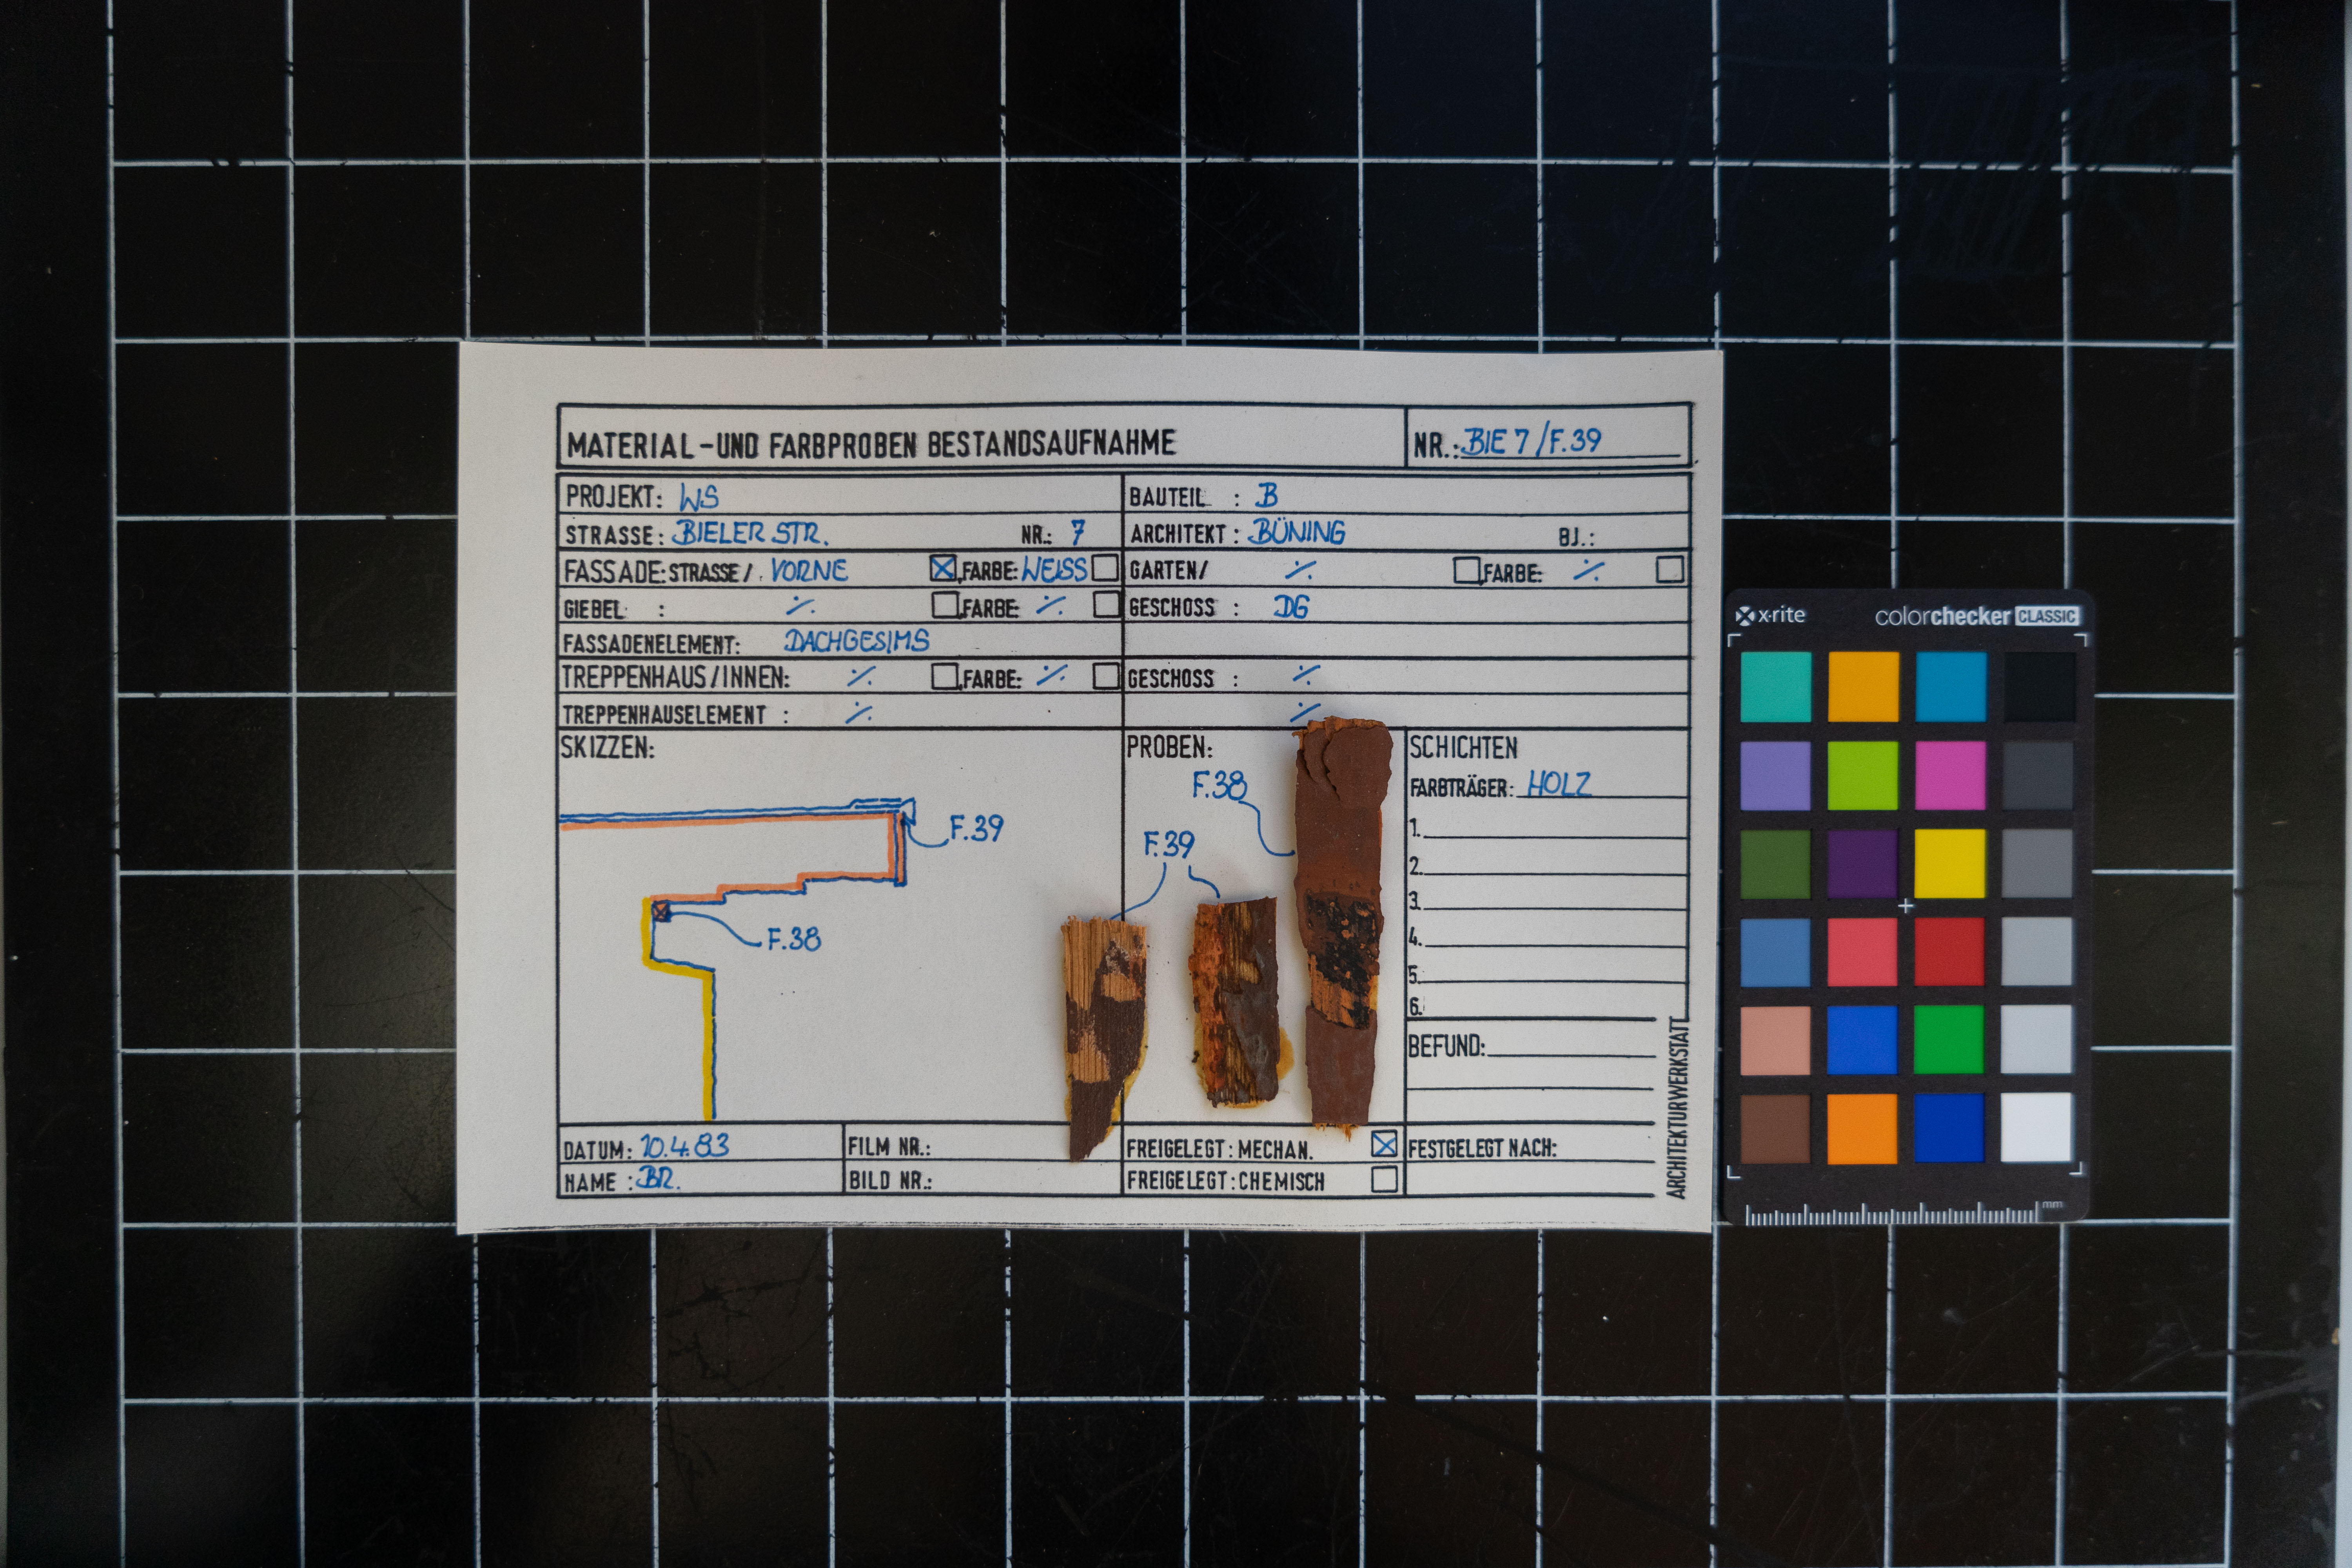 MATERIAL-UND FARBPROBEN BESTANDSAUFNAHME NR.: BIE 7/F.39
PROJEKT: WS BAUTEIL : B
STRASSE: BIELER STR. NR.: 7 ARCHITEKT: BÜNING BJ.:
FASSADE: STRASSE/. VORNE FARBE: WEISS GARTEN/ ·/. FARBE: ·/.
GIEBEL : ·/. FARBE: ·/. GESCHOSS : DG
FASSADENELEMENT: DACHGESIMS
TREPPENHAUS/INNEN: ·/. FARBE: ·/. GESCHOSS : ·/.
TREPPENHAUSELEMENT : ·/. ·/.
SKIZZEN:
F.39
F.38
PROBEN:
F.38
F.39
SCHICHTEN
FARBTRÄGER: HOLZ
1.
2.
3.
4.
5.
6.
BEFUND:
ARCHITEKTURWERKSTATT
DATUM: 10.4.83 FILM NR.: FREIGELEGT: MECHAN. FESTGELEGT NACH:
NAME : BR. BILD NR.: FREIGELEGT: CHEMISCH
x-rite colorchecker CLASSIC
mm